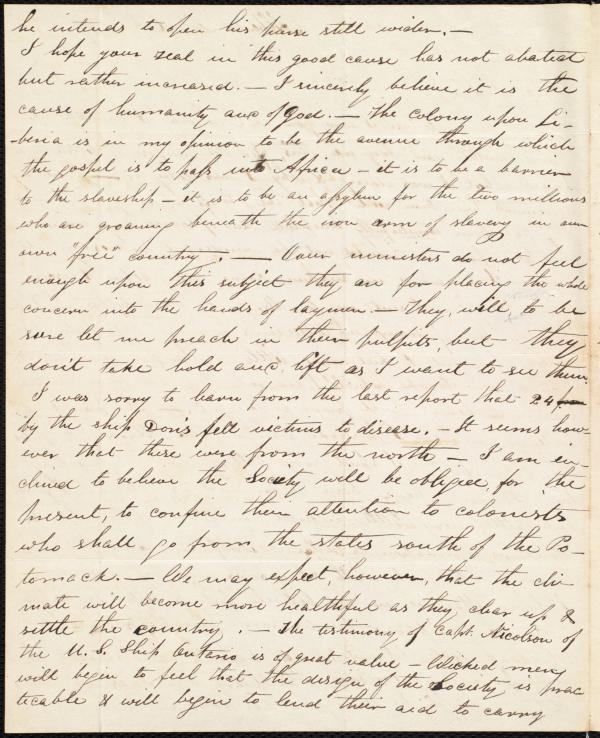 he intends to open his purse still wider. —
I hope your zeal in this good cause has not abated
but rather increased. — I sincerely believe it is the
cause of humanity and of God. — The colony upon Li-
-beria is in my opinion to be the avenue through which
the gospel is to pass into Africa — it is to be a barrier
to the slaveship — it is to be an assylum for the two millions
who are groaning beneath the iron arm of slavery in our
own "free" country. — Our ministers do not feel
enough upon this subject they are for placing the whole
concern into the hands of laymen. — They, will, to be
sure let me preach in their pulpits, but they
don't take hold and lift as I want to see them.
I was sorry to learn from the last report that 24
by the ship Doris fell victims to disease. — It seems how-
ever that these were from the north — I am in-
clined to believe the Society will be obliged, for the
present, to confine their attention to colonists
who shall go from the states south of the Po-
tomack. — We may expect, however, that the cli-
mate will become more healthful as they clear up &
settle the country. — The testimony of Capt. Nicolson of
the U. S. Ship Ontario is of great value — Wicked men
will begin to feel that the design of the Society is prac
ticable & will begin to lend their aid to carry